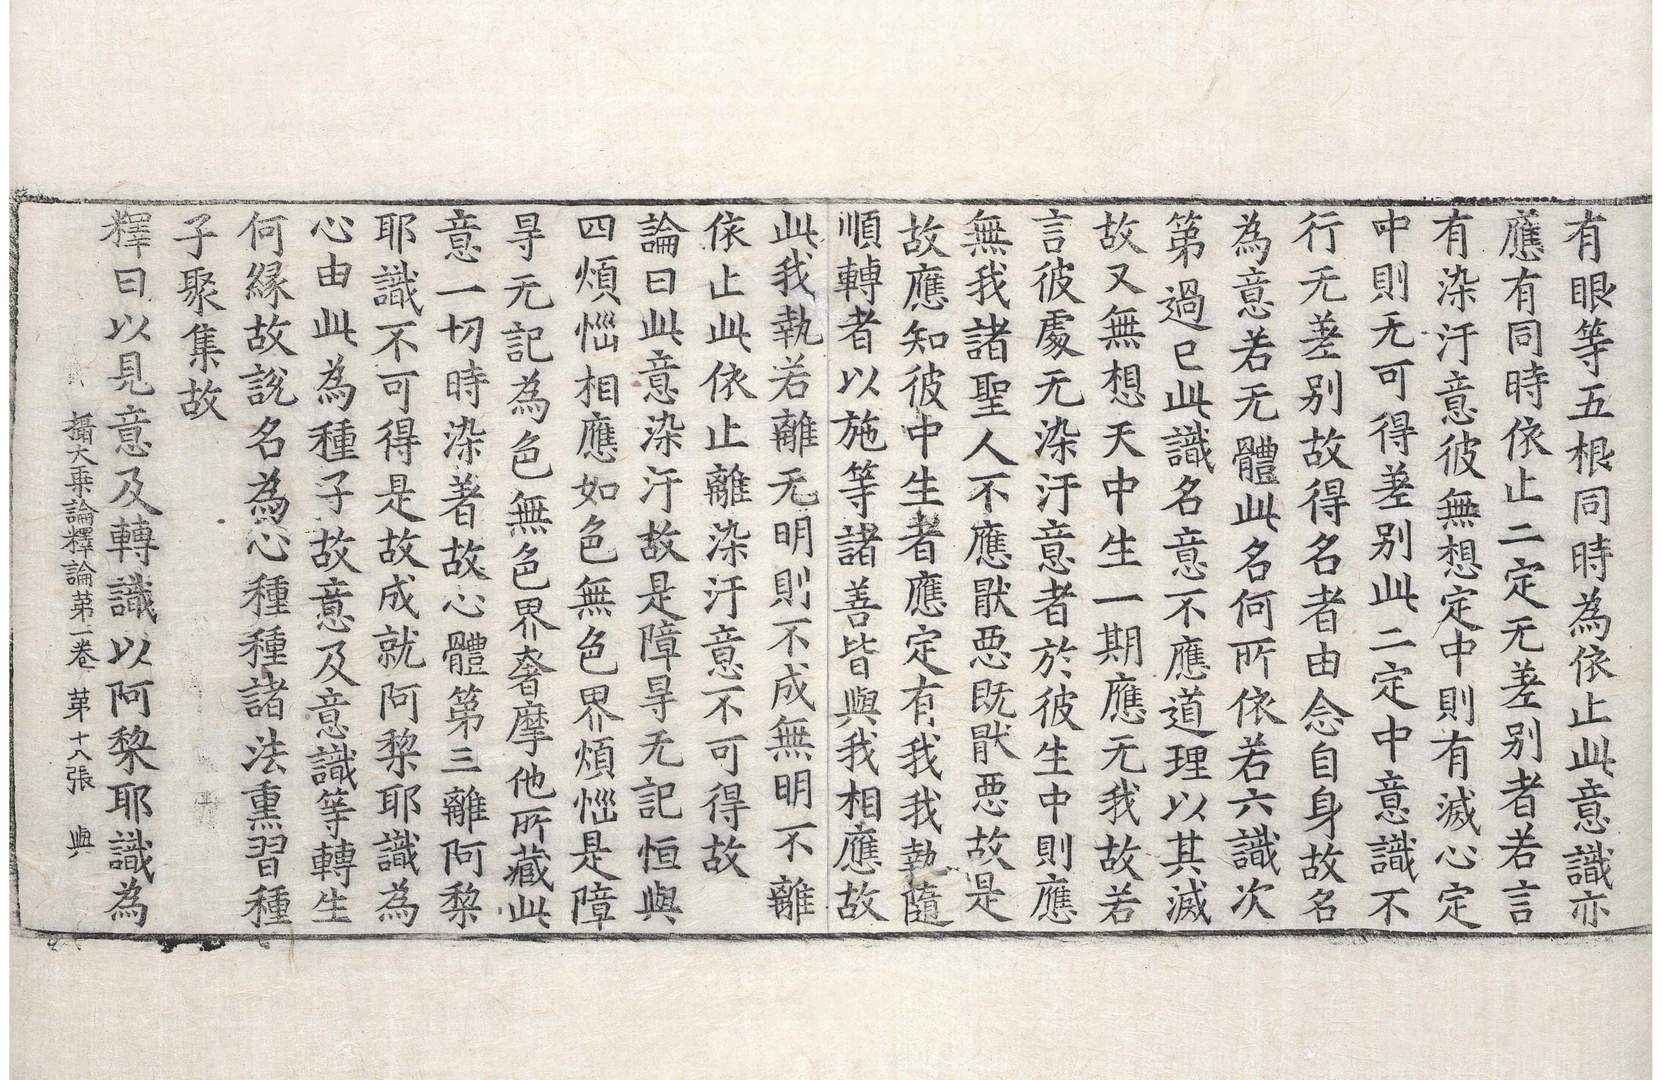 有眼等五根同時為依止此意識亦
應有同時依止二定无差別者若言
有染汙意彼無想定中則有滅心定
中則无可得差別此二定中意識不
行无差別故得名者由念自身故名
為意若无體此名何所依若六識次
第過已此識名意不應道理以其滅
故又無想天中生一期應无我故若
言彼處无染汙意者於彼生中則應
無我諸聖人不應猒惡既猒惡故是
故應知彼中生者應定有我我執隨
順轉者以施等諸善皆與我相應故
此我執若離无明則不成無明不離
依止此依止離染汙意不可得故
論曰此意染汙故是障㝵无記恒與
四煩惱相應如色無色界煩惱是障
㝵无記為色無色界奢摩他所藏此
意一切時染著故心體第三離阿梨
耶識不可得是故成就阿梨耶識為
心由此為種子故意及意識等轉生
何緣故說名為心種種諸法熏習種
子聚集故
釋曰以見意及轉識以阿梨耶識為
攝大乗論釋論第一卷 第十八張 與